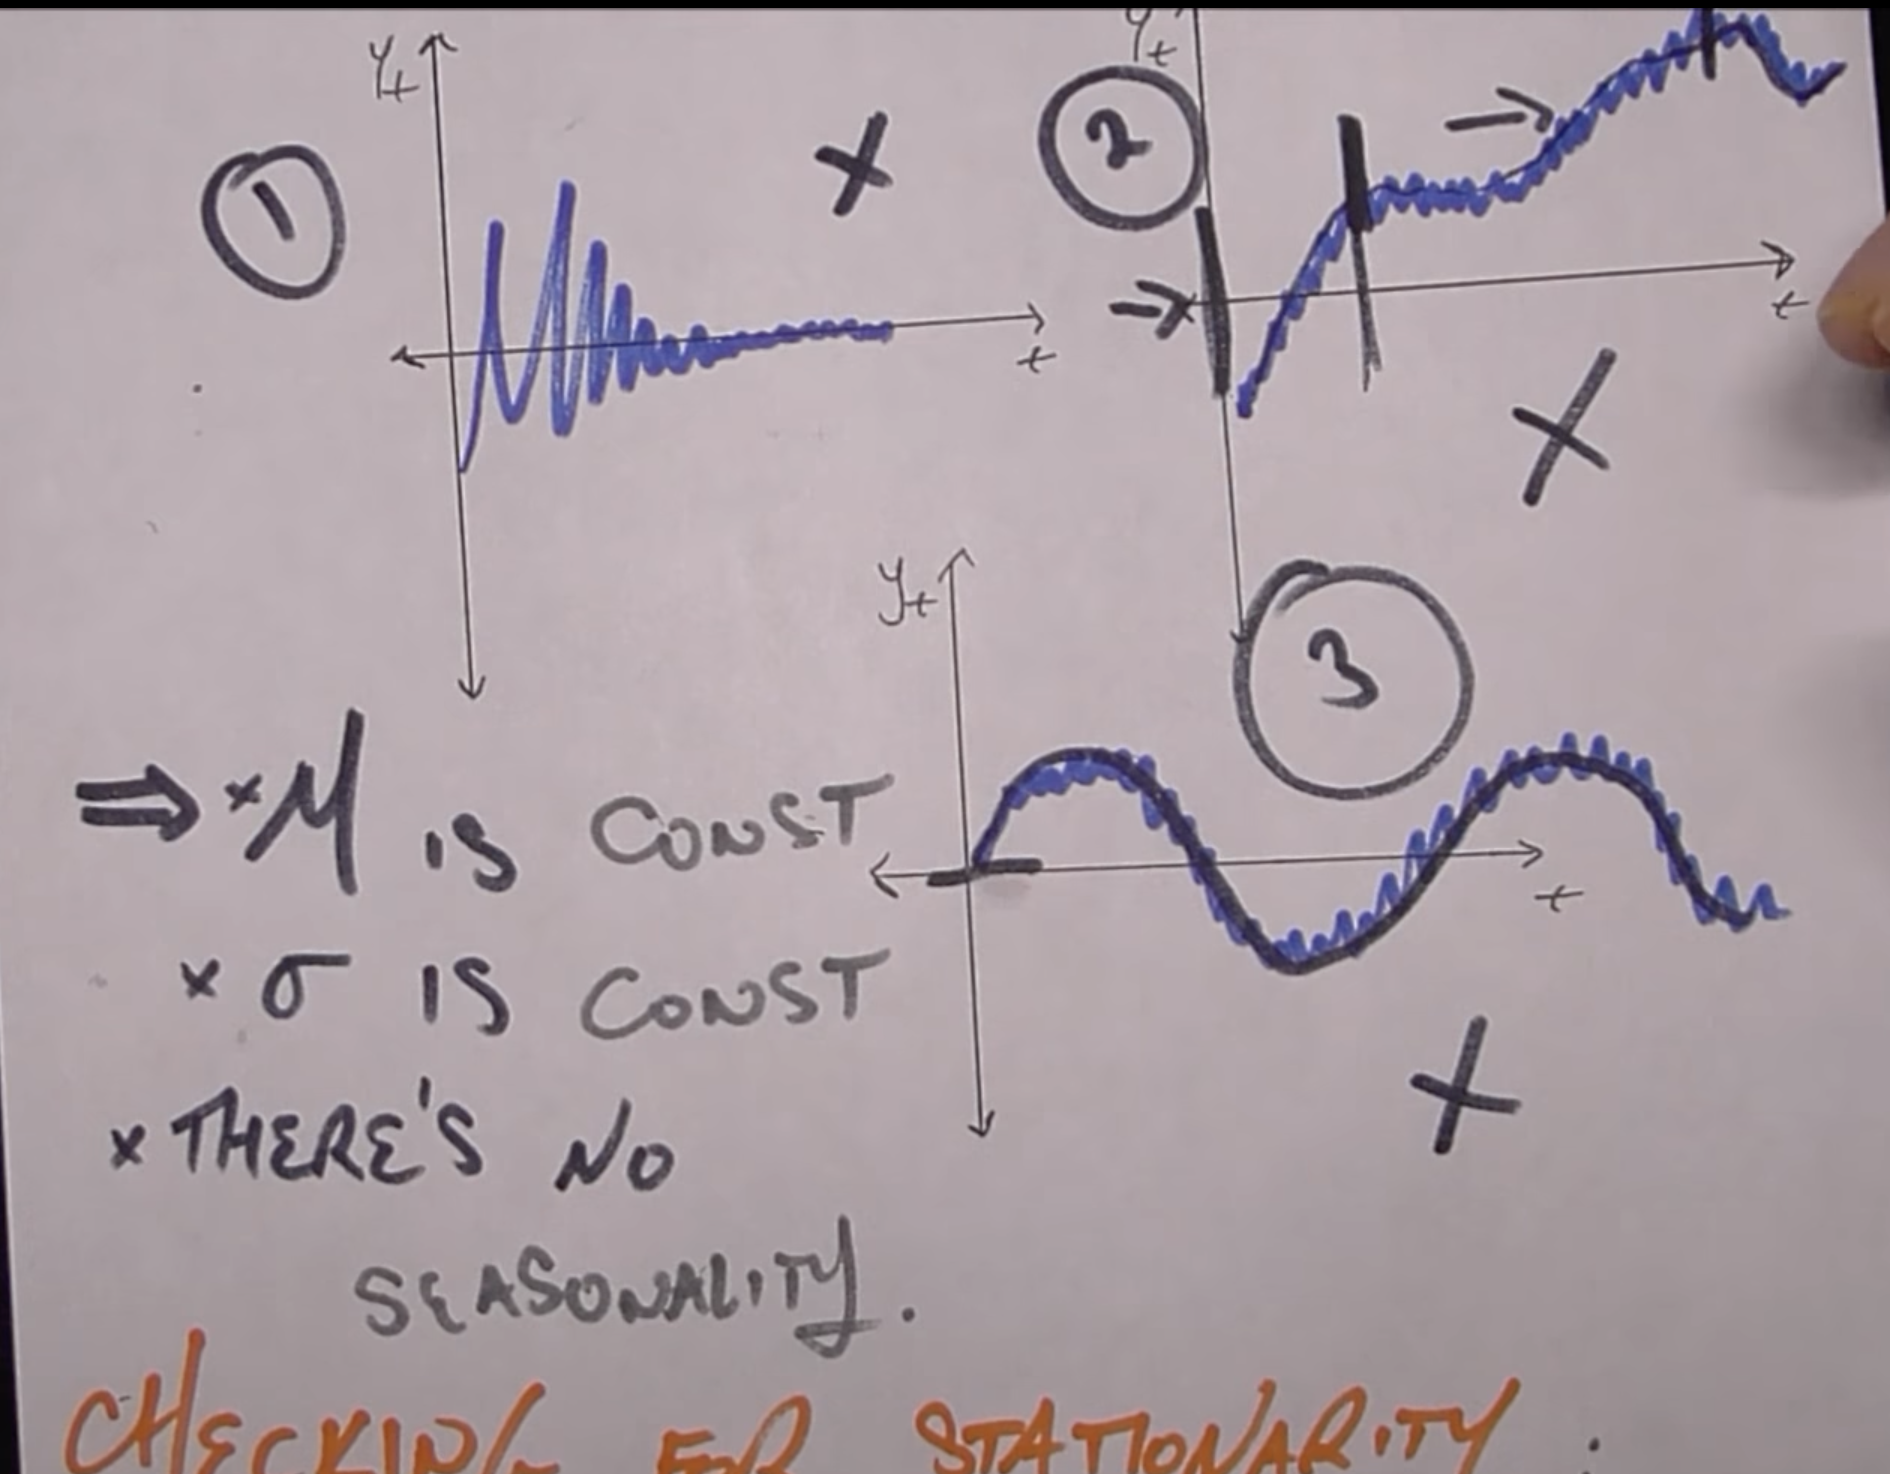 Yt
Yt
1
2
t
t
yt
3
⇒ × M is CONST
t
× σ IS CONST
× THERE'S NO
SEASONALITY.
CHECKING FOR STATIONARITY :